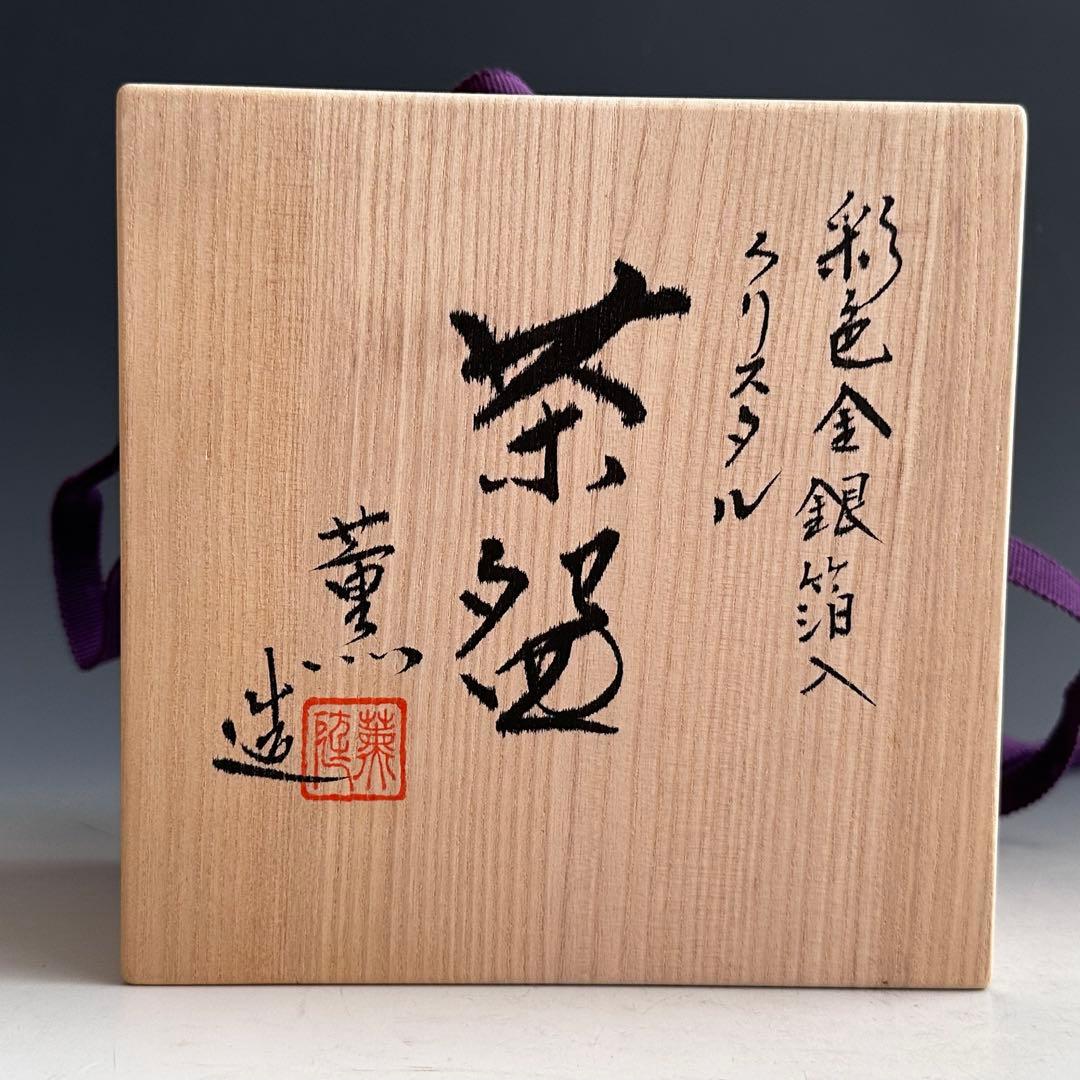 彩色金銀箔入
クリスタル
茶盌
薫
造